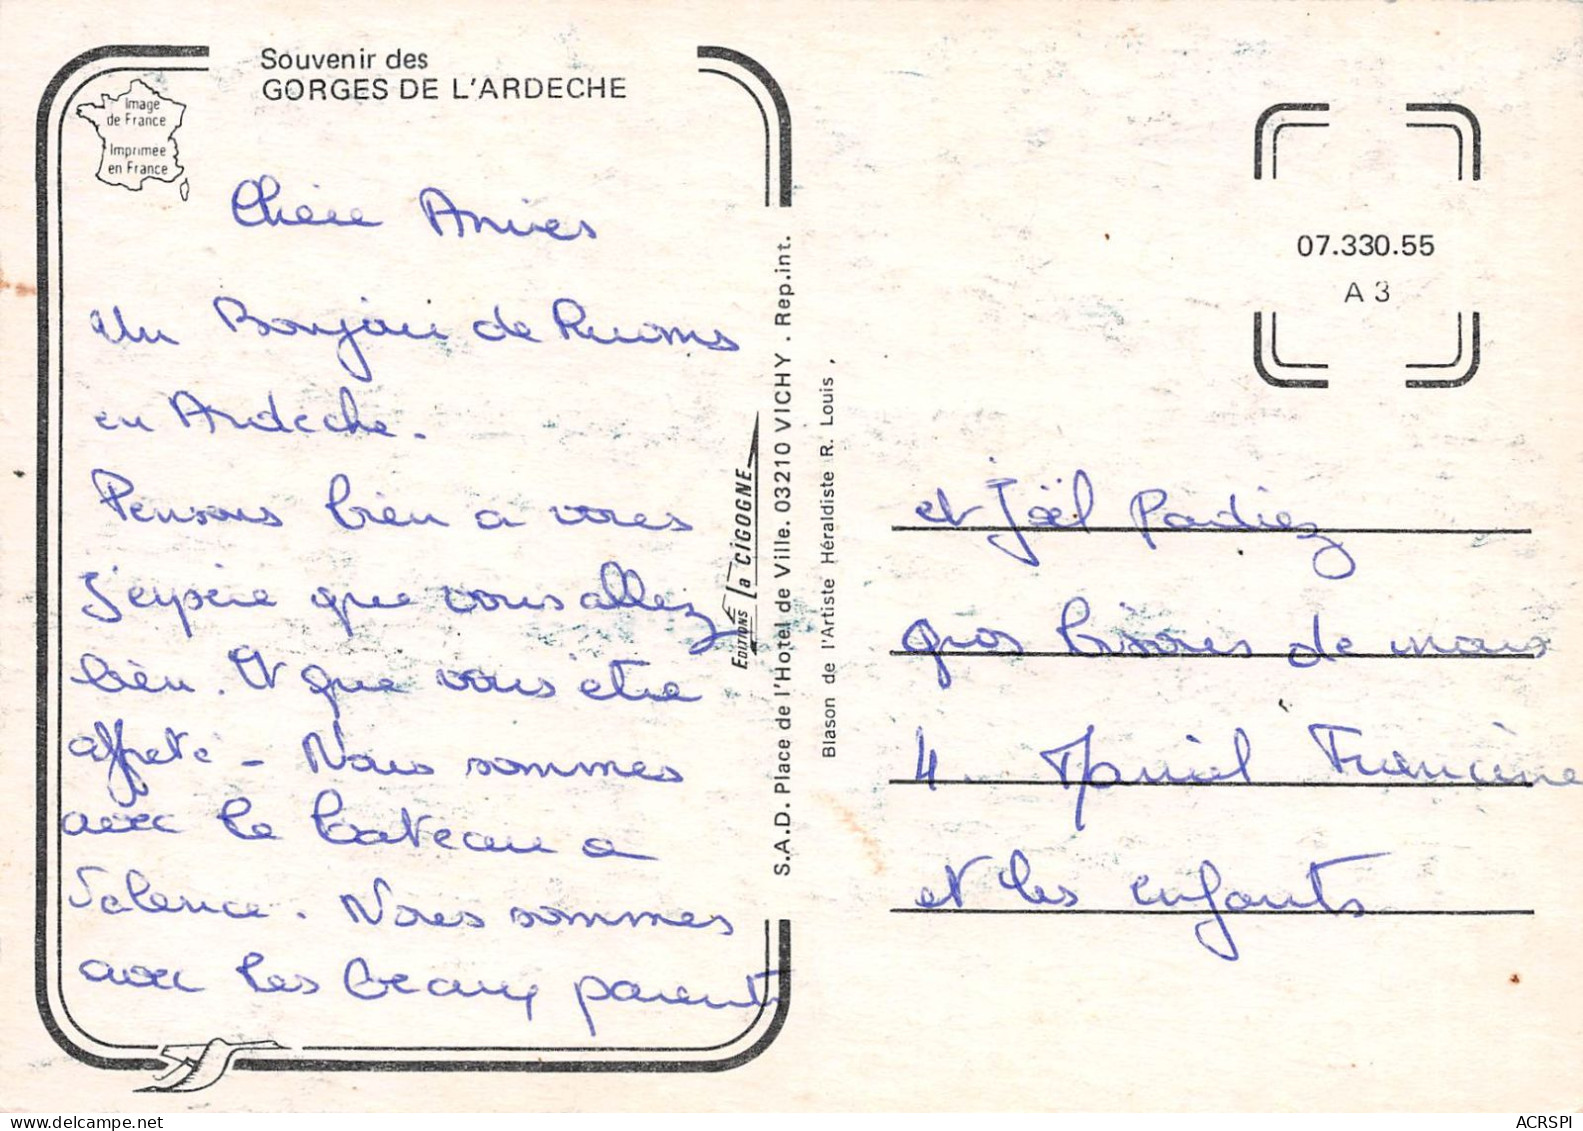 Souvenir des
GORGES DE L'ARDECHE
Image
de France
Imprimée
en France
Chère Amies
Un Bonjour de Ruoms
en Ardèche.
Pensons bien a vous
J'espère que vous allez
bien. Et que vous être
affreté - Nous sommes
avec le bateau a
Valence. Nous sommes
avec les beaux parents
EDITIONS la CIGOGNE
S.A.D. Place de l'Hotel de Ville. 03210 VICHY . Rep.int.
Blason de l'Artiste Héraldiste R. Louis ,
07.330.55
A 3
et Joël
gros bisous de nous
4. Daniel Francine
et les enfants
www.delcampe.net
ACRSPI